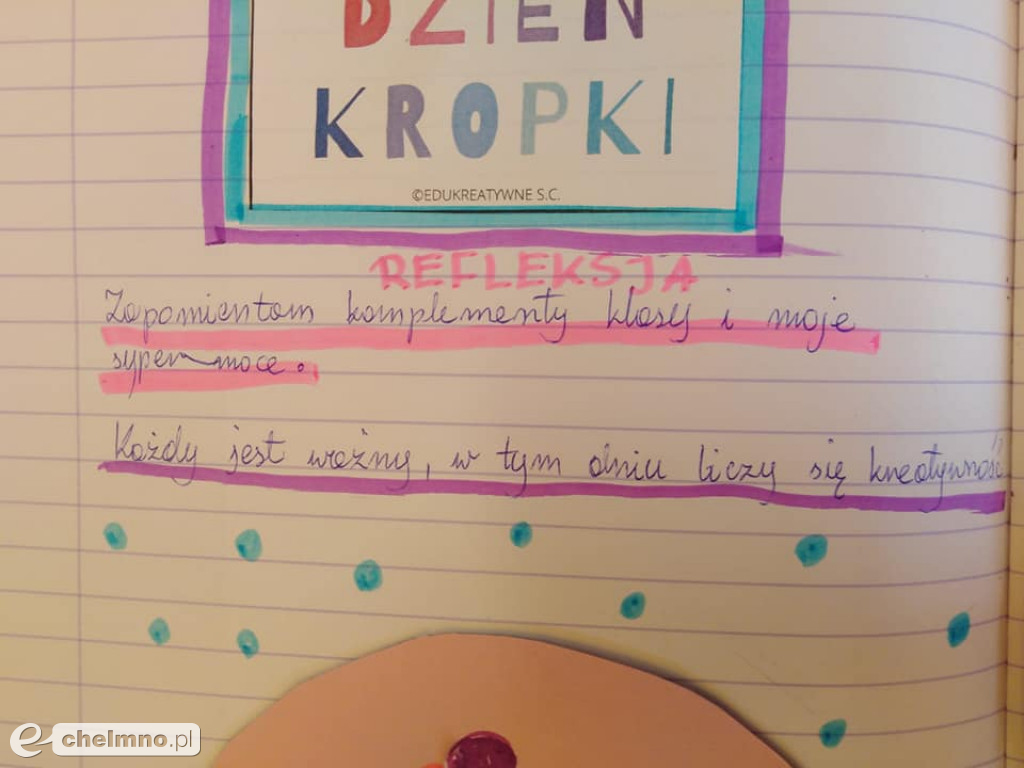 DZIEŃ
KROPKI
©EDUKREATYWNE S.C.
REFLEKSJA
Zapamientam komplementy klasy i moje
syper moce.
Każdy jest ważny, w tym dniu liczy się kreatywność
e-chelmno.pl